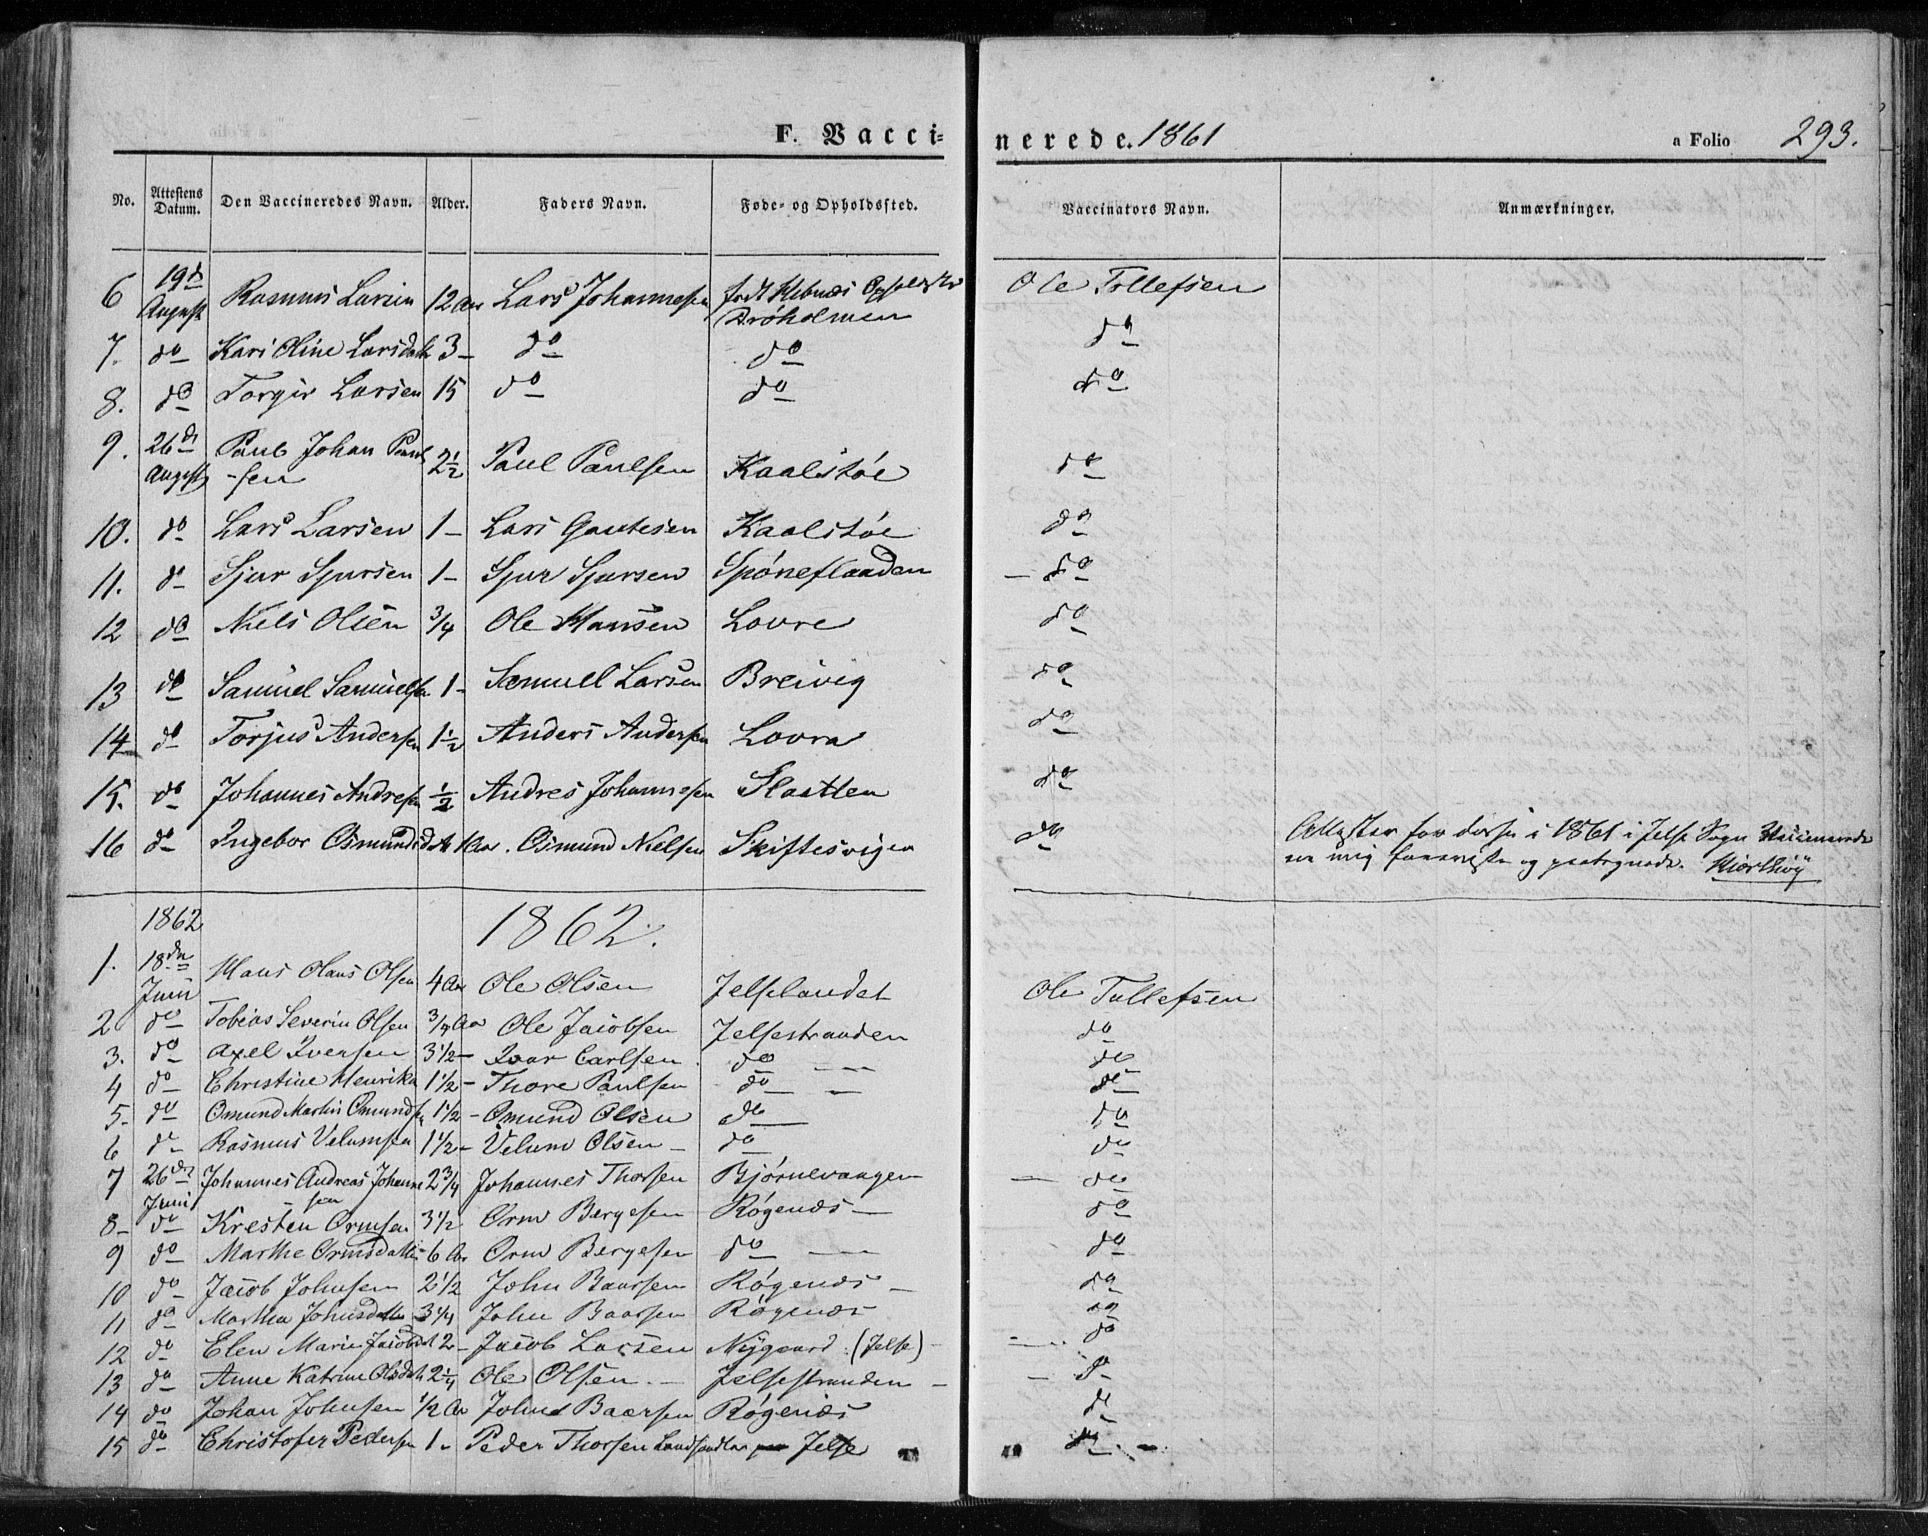 F. Vaccinerede. 1861 a Folio 293.
No. Attestens Datum. Den Vaccineredes Navn. Alder. Faders Navn. Føde- og Opholdssted. Vaccinators Navn. Anmærkninger.
6 19d August Rasmus Larsen 12 Aar Lars Johannesen født Hebnes Ole Tollefsen
7. do Kari Oline Larsdatr 3 - do do do
8. do Torgir Larsen 15 do do do
9. 26d August Paul Johan Paul-sen 2 1/2 Paul Paulsen Kaalstøe do
10. do Lars Larsen 1 - Lars Gautesen Kaalstøe do
11. do Sjur Sjursen 1 - Sjur Sjursen Spøneflaaden - do
12 do Niels Olsen 3/4 Ole Hansen Lovre do
13 do Samuel Samuelsen 1 - Samuell Larsen Breivig do
14 do Torjus Andersen 1 1/2 Anders Andersen Lovra do
15. do Johannes Andresen 1/2 Andres Johannesen Slaatten do
16 do Ingebor Osmundsdatr 1 Aar. Osmund Nielsen Skiftesvigen do Attester for disse i 1861 i Jelse Sogn Vaccinerede
ere mig foreviste og paategnede.
1862 1862.
1. 18de Juni Hans Olaus Olsen 4 Aar Ole Olsen Jelselandet Ole Tollefsen
2 do Tobias Severin Olsen 3/4 Aar Ole Jacobsen Jelsestranden do
3. do Axel Iversen 3 1/2 - Ivar Carlsen do - do
4 do Christine Henrikke 1 1/2 - Thore Paulsen do - do
5. do Omund Martin Omundsen 1 1/2 - Omund Olsen do do
6 do Rasmus Velumsen 1 1/2 - Velum Olsen - do do
7 26de Juni Johannes Andreas Johanne-sen 2 3/4 Johannes Thorsen Bjørnevangen - do
8 - do Kresten Ormsen 3 1/2 Orm Bergesen Røgenæs - do
9 do Marthe Ormsdatter 6 Aar Orm Bergesen do - do
10 do Jacob Johnsen 2 1/2 John Baarsen Røgenæs - do
11 do Martha Johnsdatter 3 1/4 John Baarsen Røgenæs do
12 do Elen Marie Jacobsdt 2 - Jacob Larsen Nygaard (Jelse) - do
13 do Anne Katrine Olsdatr 2 1/4 Ole Olsen - Jelsestranden - - do
14 do Johan Johnsen 1/2 Aar John Baarsen Røgenæs do
15 do Christofer Pedersen 1 - Peder Thorsen Landhandler Jelse do -